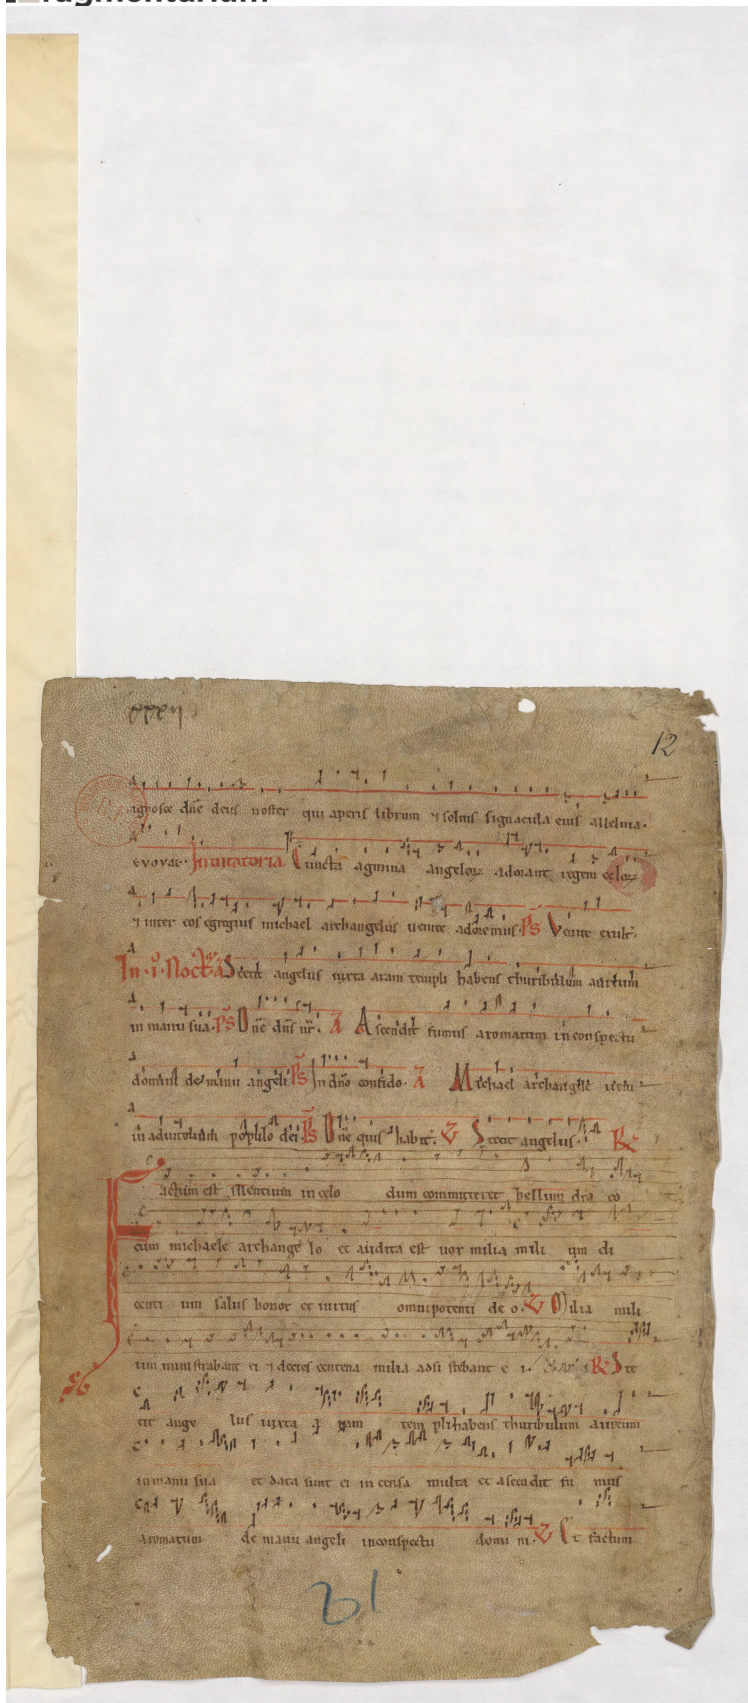 Fragmentarium
12
ignosce dn̄e deus noster qui aperis librum ⁊ soluis signacula eius alleluia.
evovae. Inuitatoria Cuncta agmina angeloꝝ adorant regem celoꝝ
⁊ inter eos egregius michael archangelus uenite adoremus. P̄s Venite exult̄.
In .i. Noct̄. A Stetit angelus iuxta aram templi habens thuribulum aureum
in manu sua. P̄s Dn̄e dn̄s nr̄. A Ascendit fumus aromatum in conspectu
domini de manu angeli P̄s In dn̄o confido. A Michael archangele ueni
in adiutorium populo dei. P̄s Dn̄e quis habit̄. Stetit angelus.
Factum est silentium in celo dum committeret bellum dra co
cum michaele archange lo et audita est uox milia mili um di
centi um salus honor et uirtus omnipotenti de o. Milia mili
um ministrabant ei ⁊ decies centena milia adsi stebant e i. Ste
tit ange lus iuxta aram tem pli habens thuribulum aureum
in manu sua et data sunt ei incensa multa et ascendit fu mus
aromatum de manu angeli in conspectu domi ni. Et factum
21